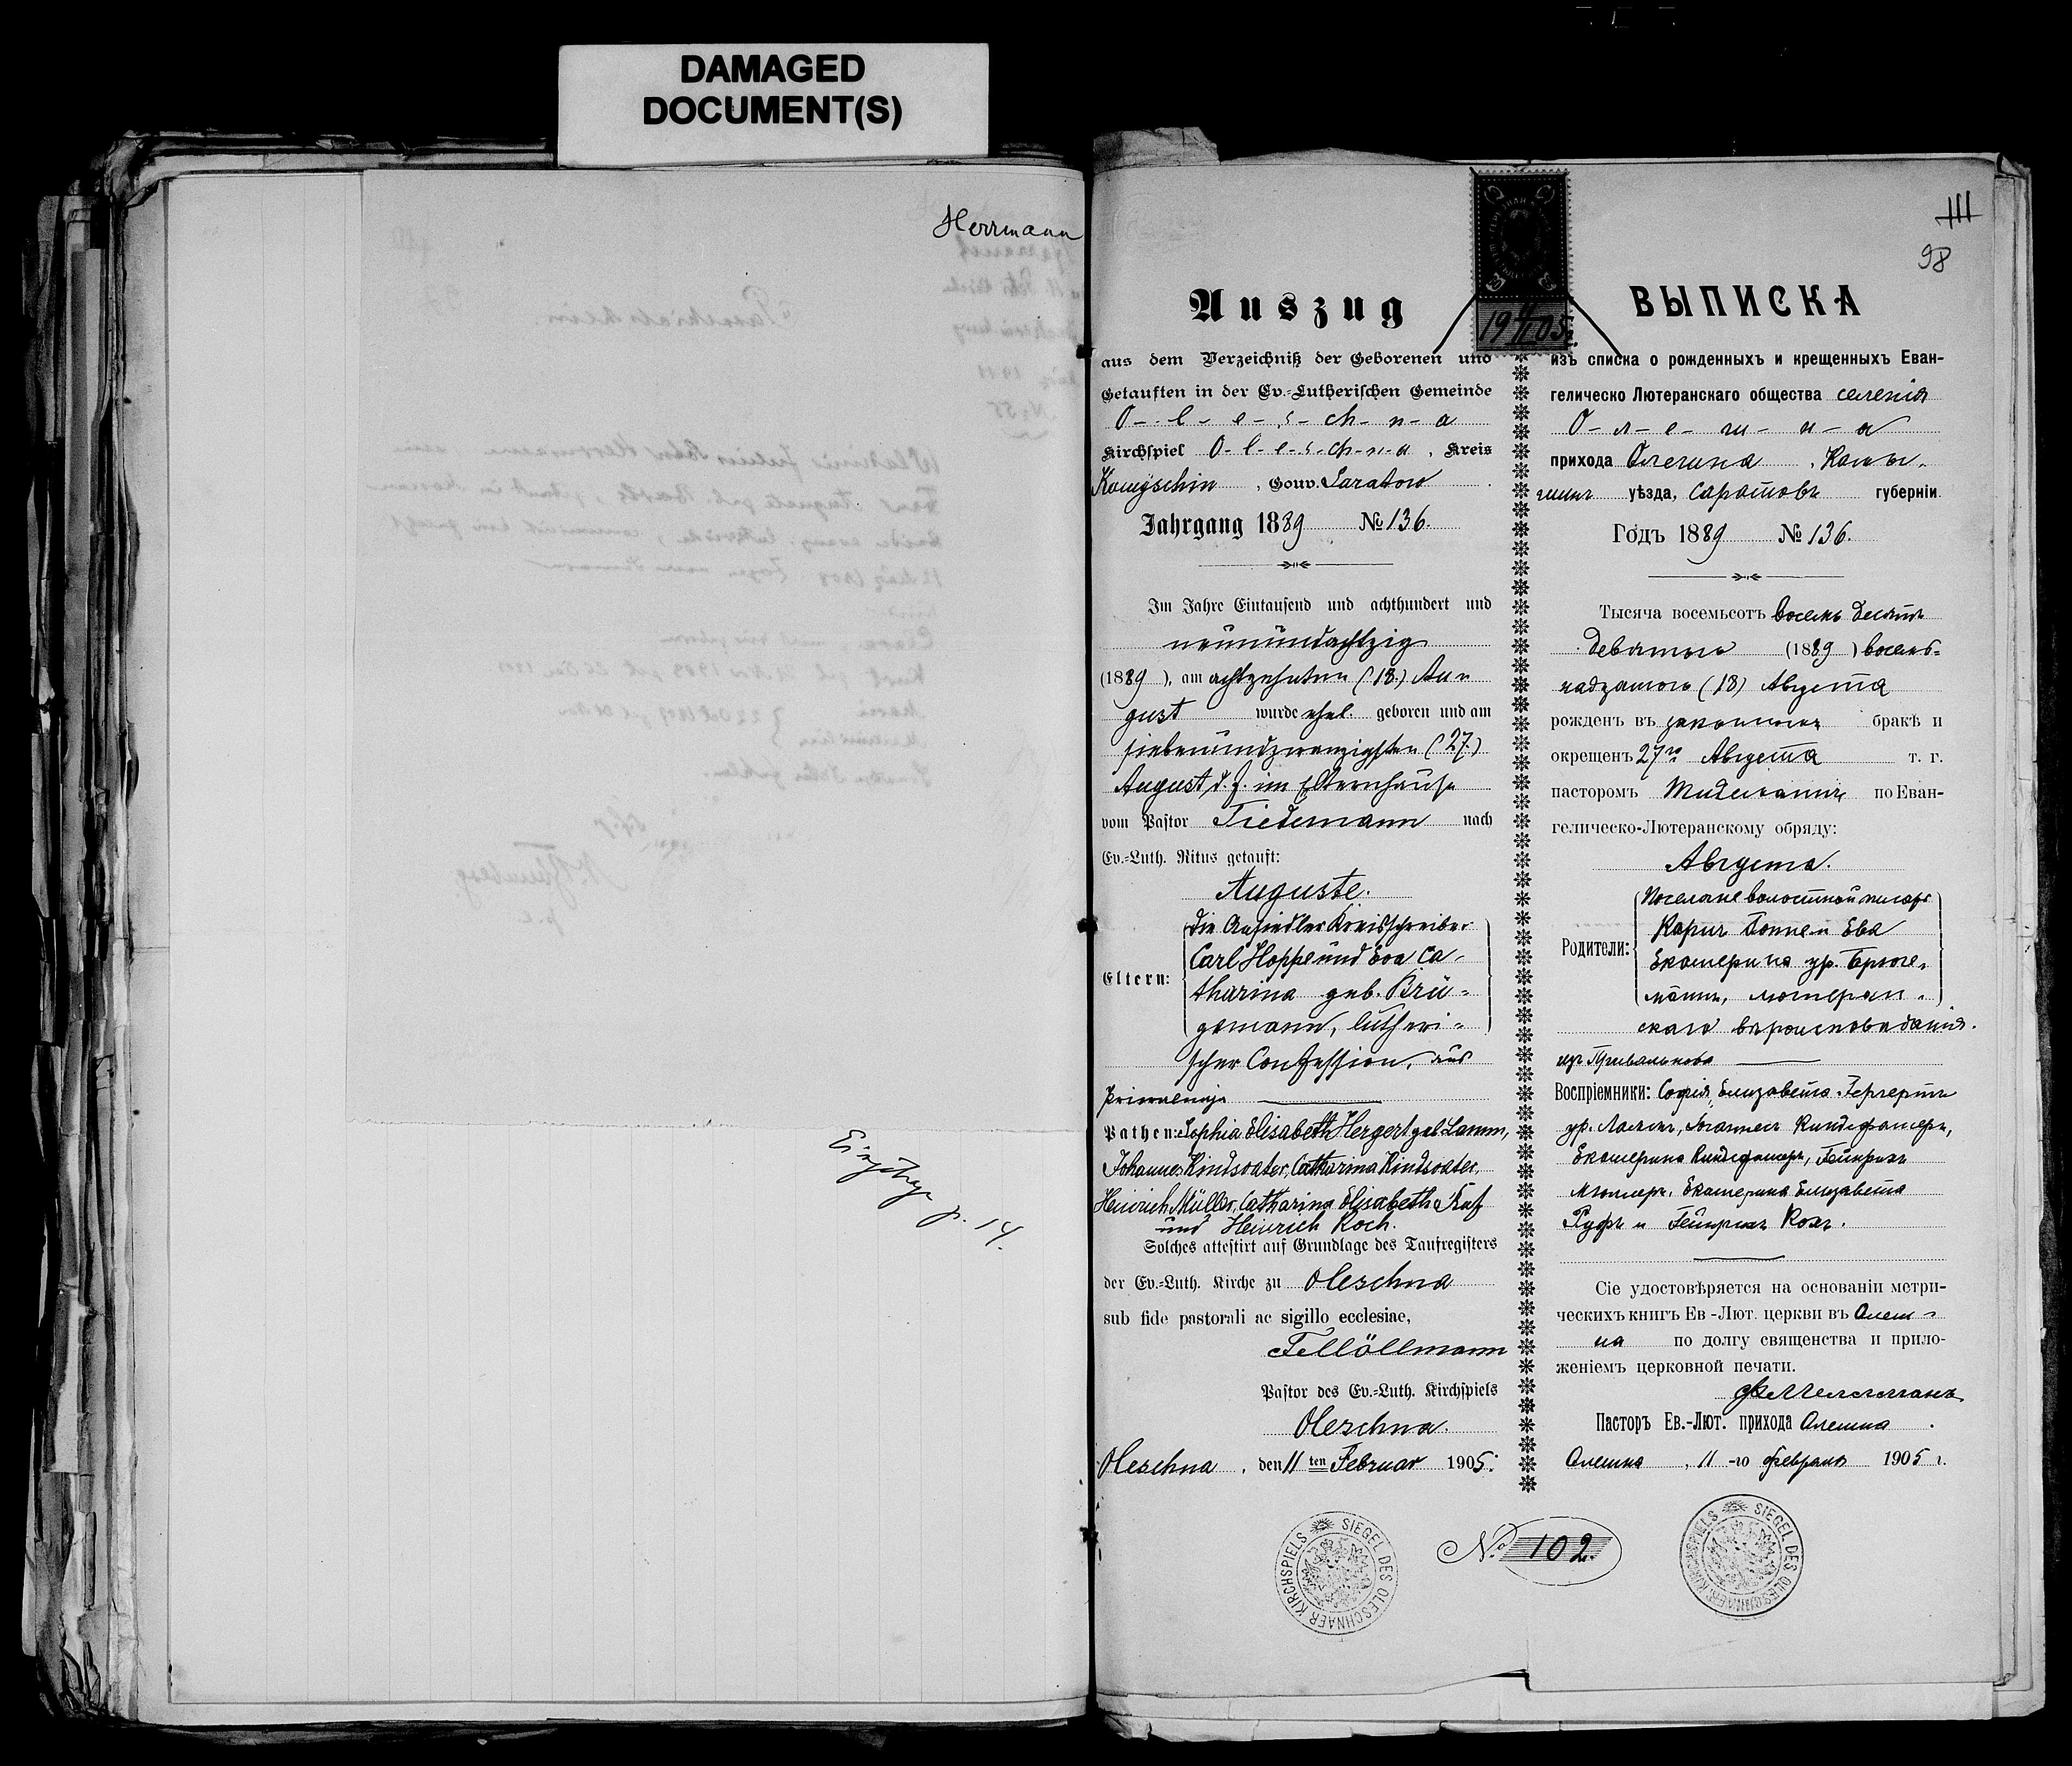 DAMAGED
DOCUMENT(S)
Herrmann
Einzutragen p. 14.
111
98
Auszug
aus dem Verzeichniß der Geborenen und
Getauften in der Ev.-Lutherischen Gemeinde
O-l-e-s-ch-n-a
Kirchspiel O-l-e-s-ch-n-a, Kreis
Kamyschin, Gouv. Saratow
Jahrgang 1889 № 136.
Im Jahre Eintausend und achthundert und
neunundachtzig
(1889), am achtzehnten (18.) Au-
gust wurde ehel. geboren und am
siebenundzwanzigsten (27.)
August, d. J. im Elternhause
vom Pastor Tiedemann nach
Ev.-Luth. Ritus getauft:
Auguste.
Eltern:
die Ansiedler Kreisschreiber
Carl Hoppe und Eva Ca-
tharina geb. Brü-
gemann, lutheri-
scher Confession, aus
Priwalnoje
Pathen: Sophia Elisabeth Hergert geb. Lamm,
Johannes Kindsvater, Catharina Kindsvater,
Heinrich Müller, Catharina Elisabeth Ruf
und Heinrich Koch.
Solches attestirt auf Grundlage des Taufregisters
der Ev.-Luth. Kirche zu Oleschna
sub fide pastorali ac sigillo ecclesiae,
F. Möllmann
Pastor des Ev.-Luth. Kirchspiels
Oleschna.
Oleschna, den 11 ten Februar 1905.
SIEGEL DES OLESCHNAER KIRCHSPIELS
№ 102.
ВЫПИСКА
изъ списка о рожденныхъ и крещенныхъ Еван-
гелическо Лютеранскаго общества селенія
О-л-е-ш-н-а
прихода Олешна, Камы-
шин уѣзда, Саратовъ губерніи
Годъ 1889 № 136.
Тысяча восемьсотъ восемь десятъ
девятого (1889) восемь-
надцатого (18) Августа
рожденъ въ законномъ бракѣ и
окрещенъ 27го Августа т. г.
пасторомъ Тидеманъ по Еван-
гелическо-Лютеранскому обряду:
Августа.
Родители:
Поселяне волостной писарь
Карлъ Гоппе и Ева
Екатерина ур. Брюге-
манъ, лютеран-
скаго вѣроисповѣданія.
изъ Привальнова
Воспріемники: Софія Елизавета Гергертъ
ур. Ламмъ, Іоаннесъ Киндсфатеръ,
Екатерина Киндсфатеръ, Гейнрихъ
Мюллеръ, Екатерина Елизавета
Руфъ и Гейнрихъ Кохъ.
Сіе удостовѣряется на основаніи метри-
ческихъ книгъ Ев-Лют. церкви въ Олеш-
на по долгу священства и прило-
женіемъ церковной печати.
Ф. Меллманъ
Пасторъ Ев.-Лют. прихода Олешна.
Олешна, 11-го февраля 1905 г.
SIEGEL DES OLESCHNAER KIRCHSPIELS